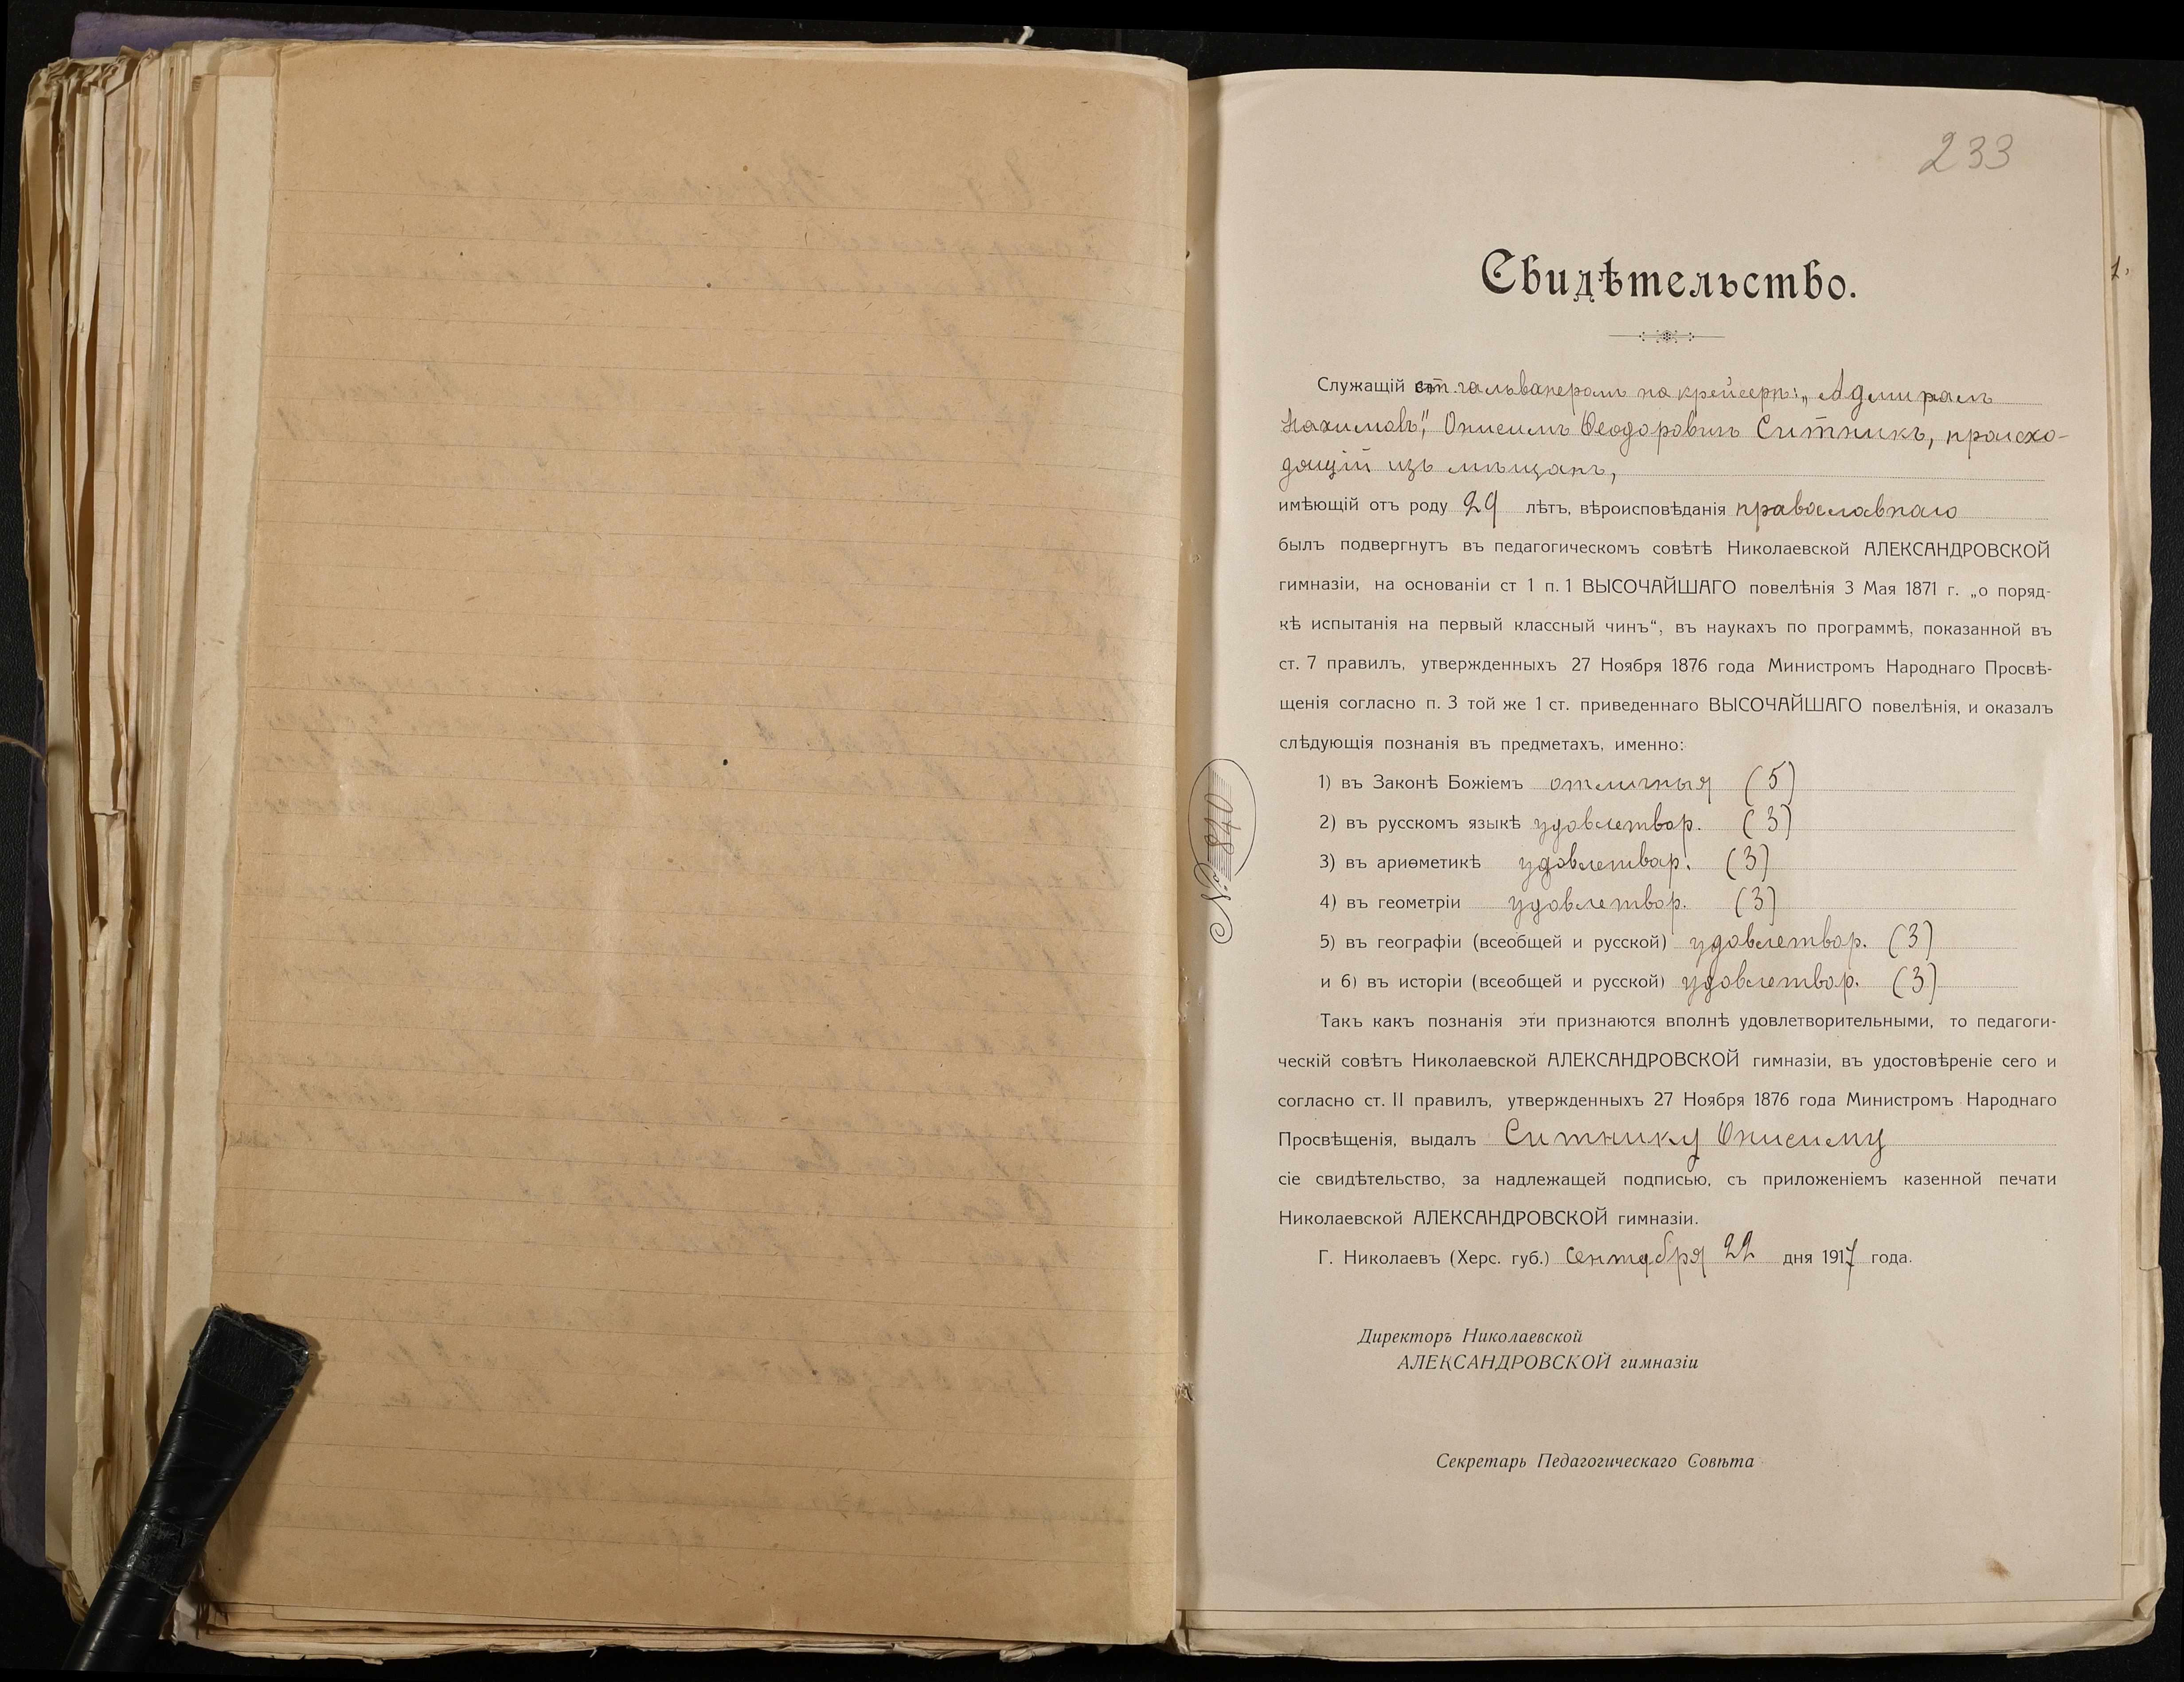 233
Свидѣтельство.
Служащій ст. гальванеромъ на крейсерѣ: „Адмиралъ
Нахимовъ", Онисимъ Ѳеодоровичъ Ситникъ, происхо-
дящій изъ мѣщанъ,
имѣющій отъ роду 29 лѣтъ, вѣроисповѣданія православнаго
былъ подвергнутъ въ педагогическомъ совѣтѣ Николаевской АЛЕКСАНДРОВСКОЙ
гимназіи, на основаніи ст 1 п. 1 ВЫСОЧАЙШАГО повелѣнія 3 Мая 1871 г. „о поряд-
кѣ испытанія на первый классный чинъ“, въ наукахъ по программѣ, показанной въ
ст. 7 правилъ, утвержденныхъ 27 Ноября 1876 года Министромъ Народнаго Просвѣ-
щенія согласно п. 3 той же 1 ст. приведеннаго ВЫСОЧАЙШАГО повелѣнія, и оказалъ
слѣдующія познанія въ предметахъ, именно:
1) въ Законѣ Божіемъ отличныя (5)
2) въ русскомъ языкѣ удовлетвор. (3)
3) въ ариѳметикѣ удовлетвор. (3)
4) въ геометріи удовлетвор. (3)
5) въ географіи (всеобщей и русской) удовлетвор. (3)
и 6) въ исторіи (всеобщей и русской) удовлетвор. (3)
Такъ какъ познанія эти признаются вполнѣ удовлетворительными, то педагоги-
ческій совѣтъ Николаевской АЛЕКСАНДРОВСКОЙ гимназіи, въ удостовѣреніе сего и
согласно ст. II правилъ, утвержденныхъ 27 Ноября 1876 года Министромъ Народнаго
Просвѣщенія, выдалъ Ситнику Онисиму
сіе свидѣтельство, за надлежащей подписью, съ приложеніемъ казенной печати
Николаевской АЛЕКСАНДРОВСКОЙ гимназіи.
Г. Николаевъ (Херс. губ.) Сентября 22 дня 1917 года.
Директоръ Николаевской
АЛЕКСАНДРОВСКОЙ гимназіи
Секретарь Педагогическаго Совѣта
№ 840